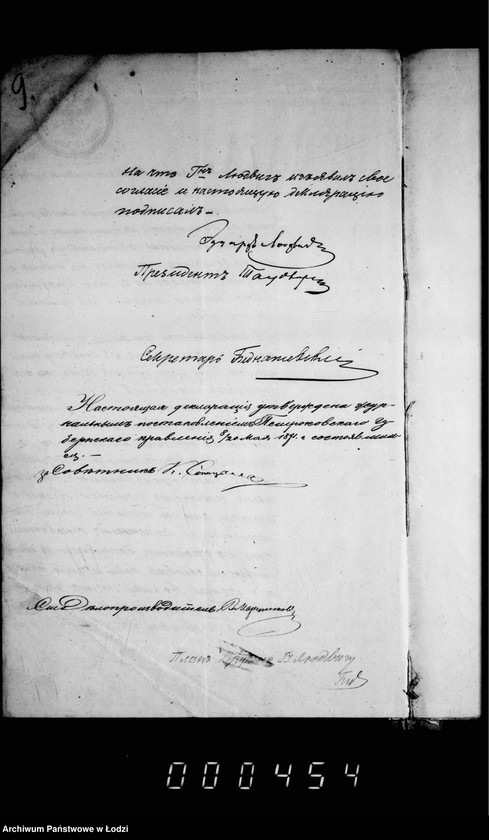 9.
на что Гнъ Людвигъ изъявилъ свое
согласіе и настоящую декларацію
подписалъ.
Людвигъ
Президентъ
Секретарь
Настоящая декларація утверждена жур-
нальнымъ постановленіемъ Петроковскаго Гу-
бернскаго Правленія мая 187 г состоявшим-
ся. —
за Совѣтникъ К.
Дѣлопроизводитель
Планъ Гн Людвигу
000454
Archiwum Państwowe w Łodzi